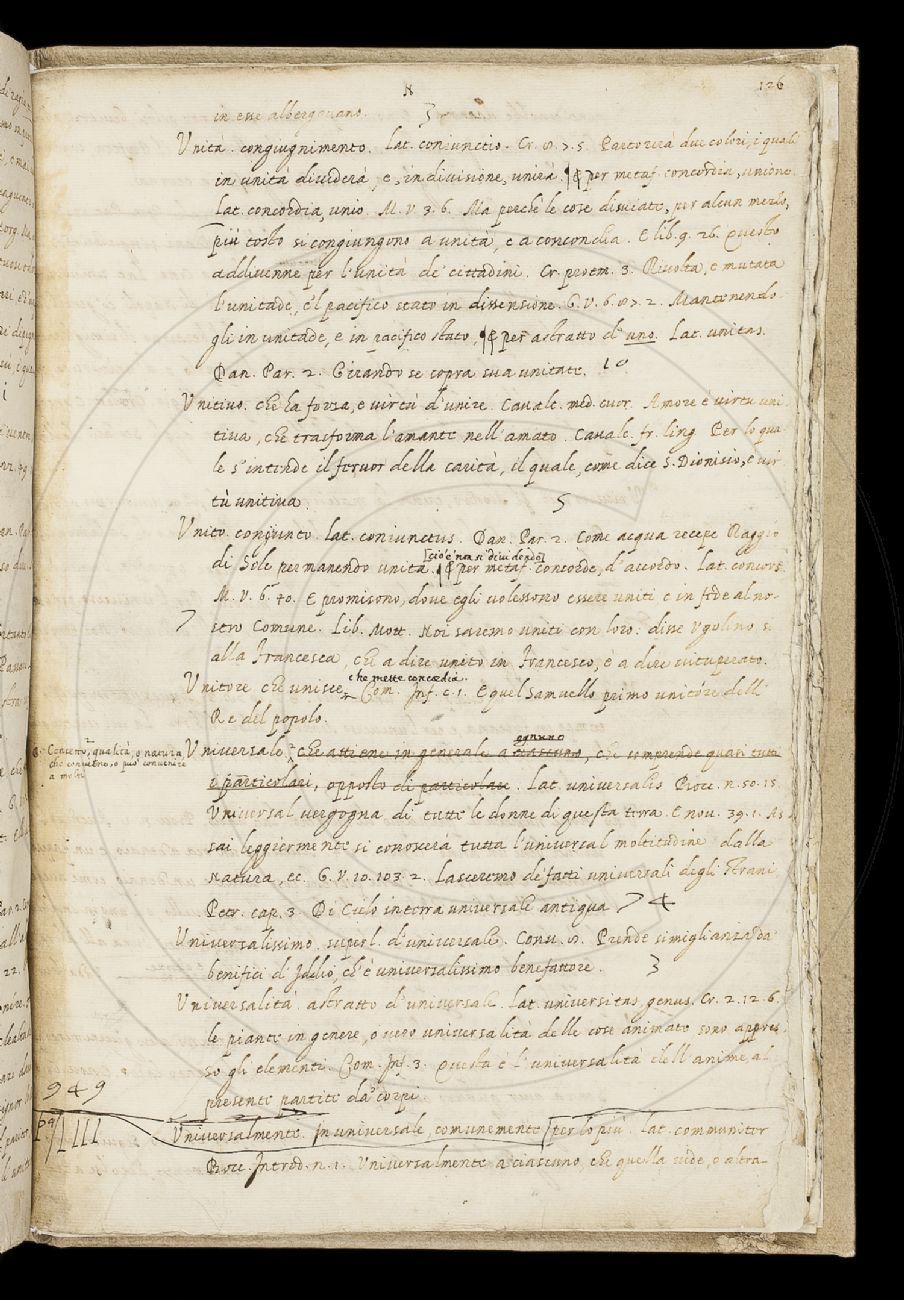 126
in esse albergavano. 3
Unità. congiugnimento. Lat. coniunctio. Cr. 8. 7. 5. Partorirà dui colori, i quali
in unità dividerà, e, in divisione, unirà. ¶ per metaf. concordia, unione.
Lat. concordia, unio. M. V. 3. 6. Ma perchè le cose disviate, per alcun merlo,
più tosto si congiungono a unità, e a concordia. E lib. 9. 26. Questo
addivenne per l'unità de' cittadini. Cr. proem. 3. Rivolta, e mutata
l'unitade, e 'l pacifico stato in dissensione. G. V. 6. 87. 2. Mantenendo
gli in unitade, e in pacifico stato, ¶ per astratto d'uno. Lat. unitas.
Dan. Par. 2. Girando se sopra sua unitate. 10
Unitivo. che ha forza, e virtù d'unire. Cavalc. med. cuor. Amore è virtù uni-
tiva, che trasforma l'amante nell'amato. Cavalc. fr. ling. Per lo qua-
le s'intende il fervor della carità, il quale, come dice S. Dionisio, è vir-
tù unitiva. 5
Unito. congiunto. Lat. coniunctus. Dan. Par. 2. Come acqua recepe Raggio
cioè non si dividendo
di Sole permanendo unita ¶ per metaf. concorde, d'accordo. Lat. concors.
M. V. 6. 40. E promisono, dove egli volessono essere uniti e in fede al no-
7 stro Comune. Lib. Mott. Noi saremo uniti con loro: disse Ugolino, si
alla Francesca, che a dire unito in Francesco, è a dire vituperato.
che mette concordia.
Unitore che unisce, Com. Inf. c. 1. E quel Samuello primo unitore delli
Re del popolo.
ognuno
Universale che attiene in generale a ciascuno, che comprende quasi tutti
Concetto, qualità, o natura
che conviene, o può convenire
a molti
i particolari, opposto di particolare. Lat. universalis Bocc. n. 50. 15.
Universal vergogna di tutte le donne di questa terra. E nov. 39. 1. As
sai leggiermente si conoscerà tutta l'universal moltitudine dalla
natura, ec. G. V. 10. 103. 2. Lasceremo de' fatti universali degli strani
Petr. cap. 3. Di Cielo in terra universale antiqua 7 4
Universalissimo. superl. d'universale. Conv. 8. Prende simiglianza da'
benifici d'Iddio, ch'è universalissimo benefattore. 3
Universalità. astratto d'universale. Lat. universitas, genus. Cr. 2. 12. 6.
le piante in genere, o vero universalità delle cose animate sono appres-
so gli elementi. Com. Inf. 3. Questa è l'universalità dell'anime al
presente partite da' corpi.
949
Universalmente. In universale, comunemente, per lo più. Lat. communiter
Bocc. Introd. n. 1. Universalmente a ciascuno, che quella vide, o altra-